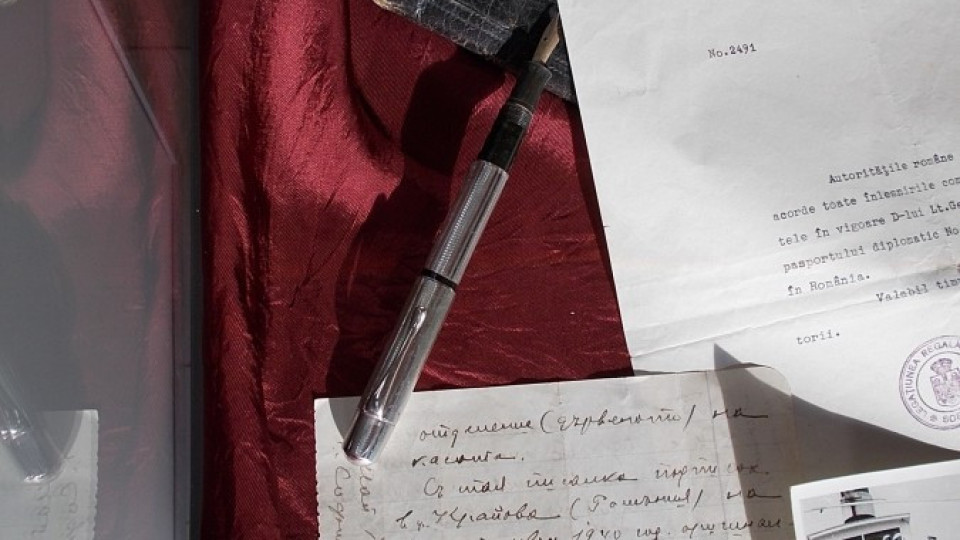 No.2491
Autorităţile române
acorde toate înlesnirile
tele în vigoare D-lui Lt.Ge
pasportului diplomatic No
în România.
Valabil tim
torii.
LEGAŢIUNEA REGALĂ
отделение (дървеното) на
касата.
С тая писалка подписах
в гр. Крайова (Румъния) на
1940 год.